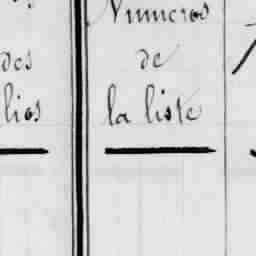 Numéros
des de
lios la liste